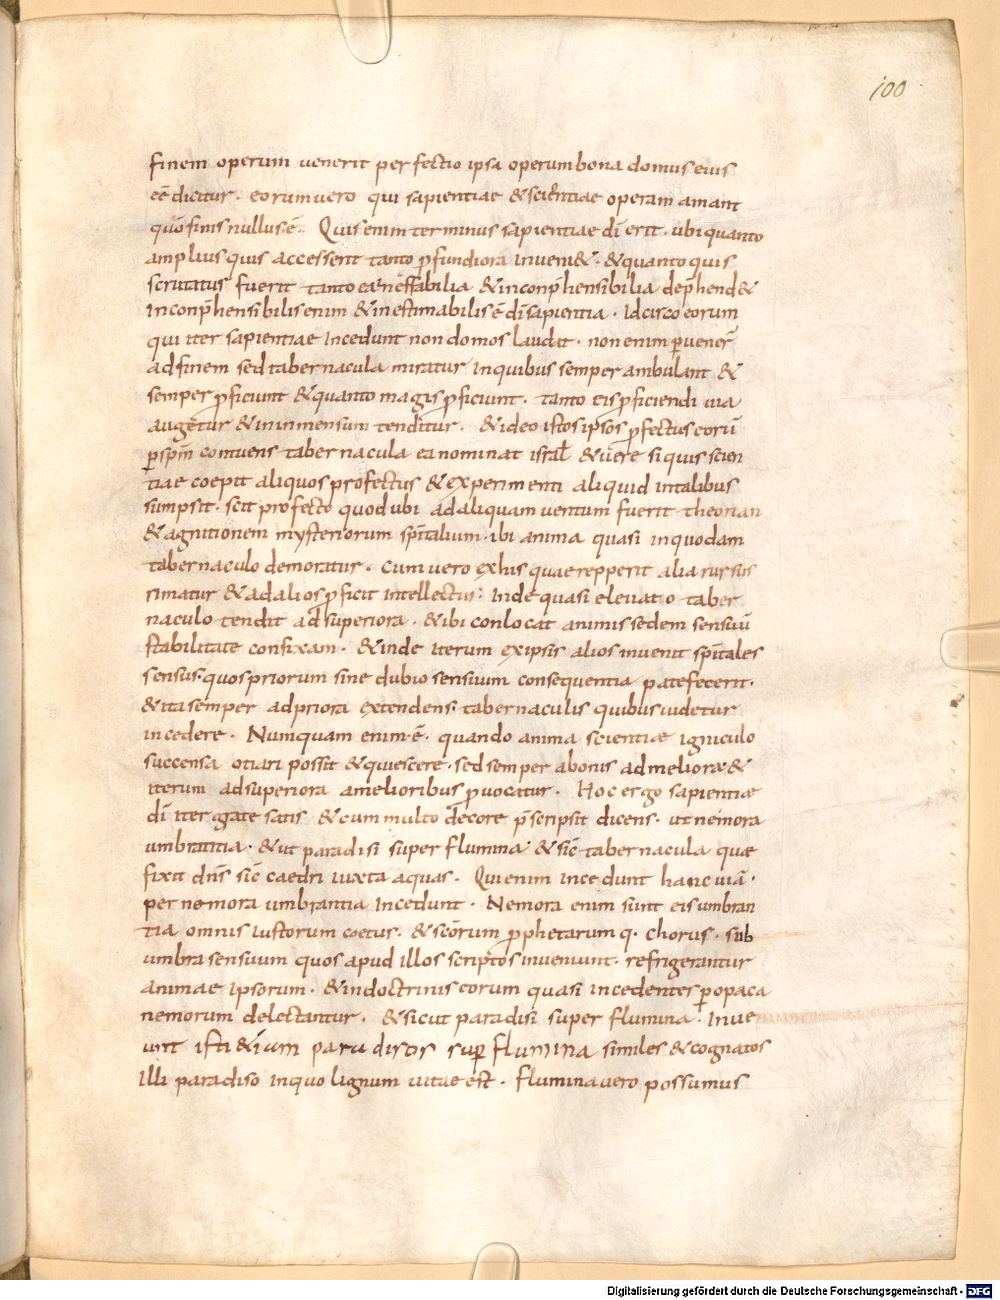 100
finem operum uenerit perfectio ipsa operum bona domus eius
eē dicitur. eorum uero qui sapientiae & scientiae operam amant
quō finis nullus ē. Quis enim terminus sapientiae dī erit. ubi quanto
amplius quis accesserit tanto p̄fundiora inueni&. & quanto quis
scrutatus fuerit tanto ea ineffabilia & inconp̄hensibilia dep̄hend&
Inconp̄hensibilis enim & inestimabilis ē dī sapientia. Idcirco eorum
qui iter sapientiae Incedunt non domos laudat. non enim p̱uener̄
ad finem sed tabernacula miratur In quibus semper ambulant &
semper p̱ficiunt & quanto magis p̱ficiunt. tanto eis p̱ficiendi uia
augetur & in inmensum tenditur. & ideo istos ipsos p̱fectus eorū
p̱ sp̄m contuens tabernacula ea nominat israł & uere si quis scien
tiae coepit aliquos profectus & experimenti aliquid in talibus
sumpsit. scit profecto quod ubi ad aliquam uentum fuerit theorian
& agnitionem mysteriorum sp̄italium. ibi anima quasi in quodam
tabernaculo demoratur. Cum uero ex his quae repperit alia rursus
rimatur & ad alios p̱ficit intellectus. Inde quasi eleuato taber
naculo tendit ad superiora. & ibi conlocat animi sedem sensuū
stabilitate confixam. & inde iterum ex ipsis alios inuenit sp̄itales
sensus. quos priorum sine dubio sensuum consequentia patefecerit.
& ita semper ad priora extendens. tabernaculis quibus uidetur
incedere. Numquam enim ē. quando anima scientiae igniculo
succensa otiari possit & quiescere. sed semper a bonis ad meliora &
iterum ad superiora a melioribus p̱uocatur. Hoc ergo sapientiae
dī iter grate satis & cum multo decore p̄scripsit dicens. ut nemora
umbrantia. & ut paradisi super flumina & sic̄ tabernacula quae
fixit dn̄s sic̄ caedri iuxta aquas. Qui enim incedunt hanc uiā.
per nemora umbrantia Incedunt. Nemora enim sunt eis umbran
tia omnis iustorum coetus. & sc̄orum p̱phetarum q. chorus. sub
umbra sensuum quos apud illos scriptos inueniunt. refrigerantur
animae ipsorum. & in doctrinis eorum quasi incedentes p̱ opaca
nemorum delectantur. & sicut paradisi super flumina. Inue
iunt isti &iam paradisos sup̱ flumina similes & cognatos
illi paradiso in quo lignum uitae est. flumina uero possumus
Digitalisierung gefördert durch die Deutsche Forschungsgemeinschaft - DFG